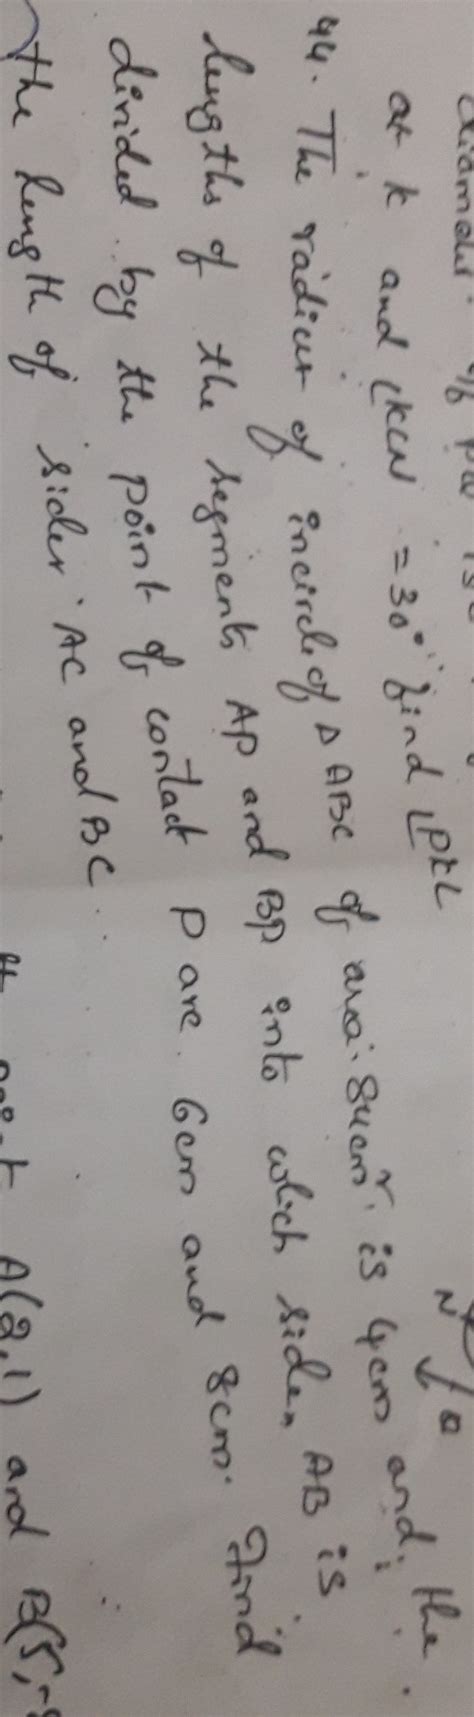 at K and ∠KCN = 30° find ∠PKL
44. The radius of incircle of Δ ABC of area 84cm². is 4cm and the
lengths of the segments AP and BP into which side AB is
divided by the point of contact P are 6cm and 8cm. Find
the length of sides AC and BC.
point A(2,1) and B(5,-8